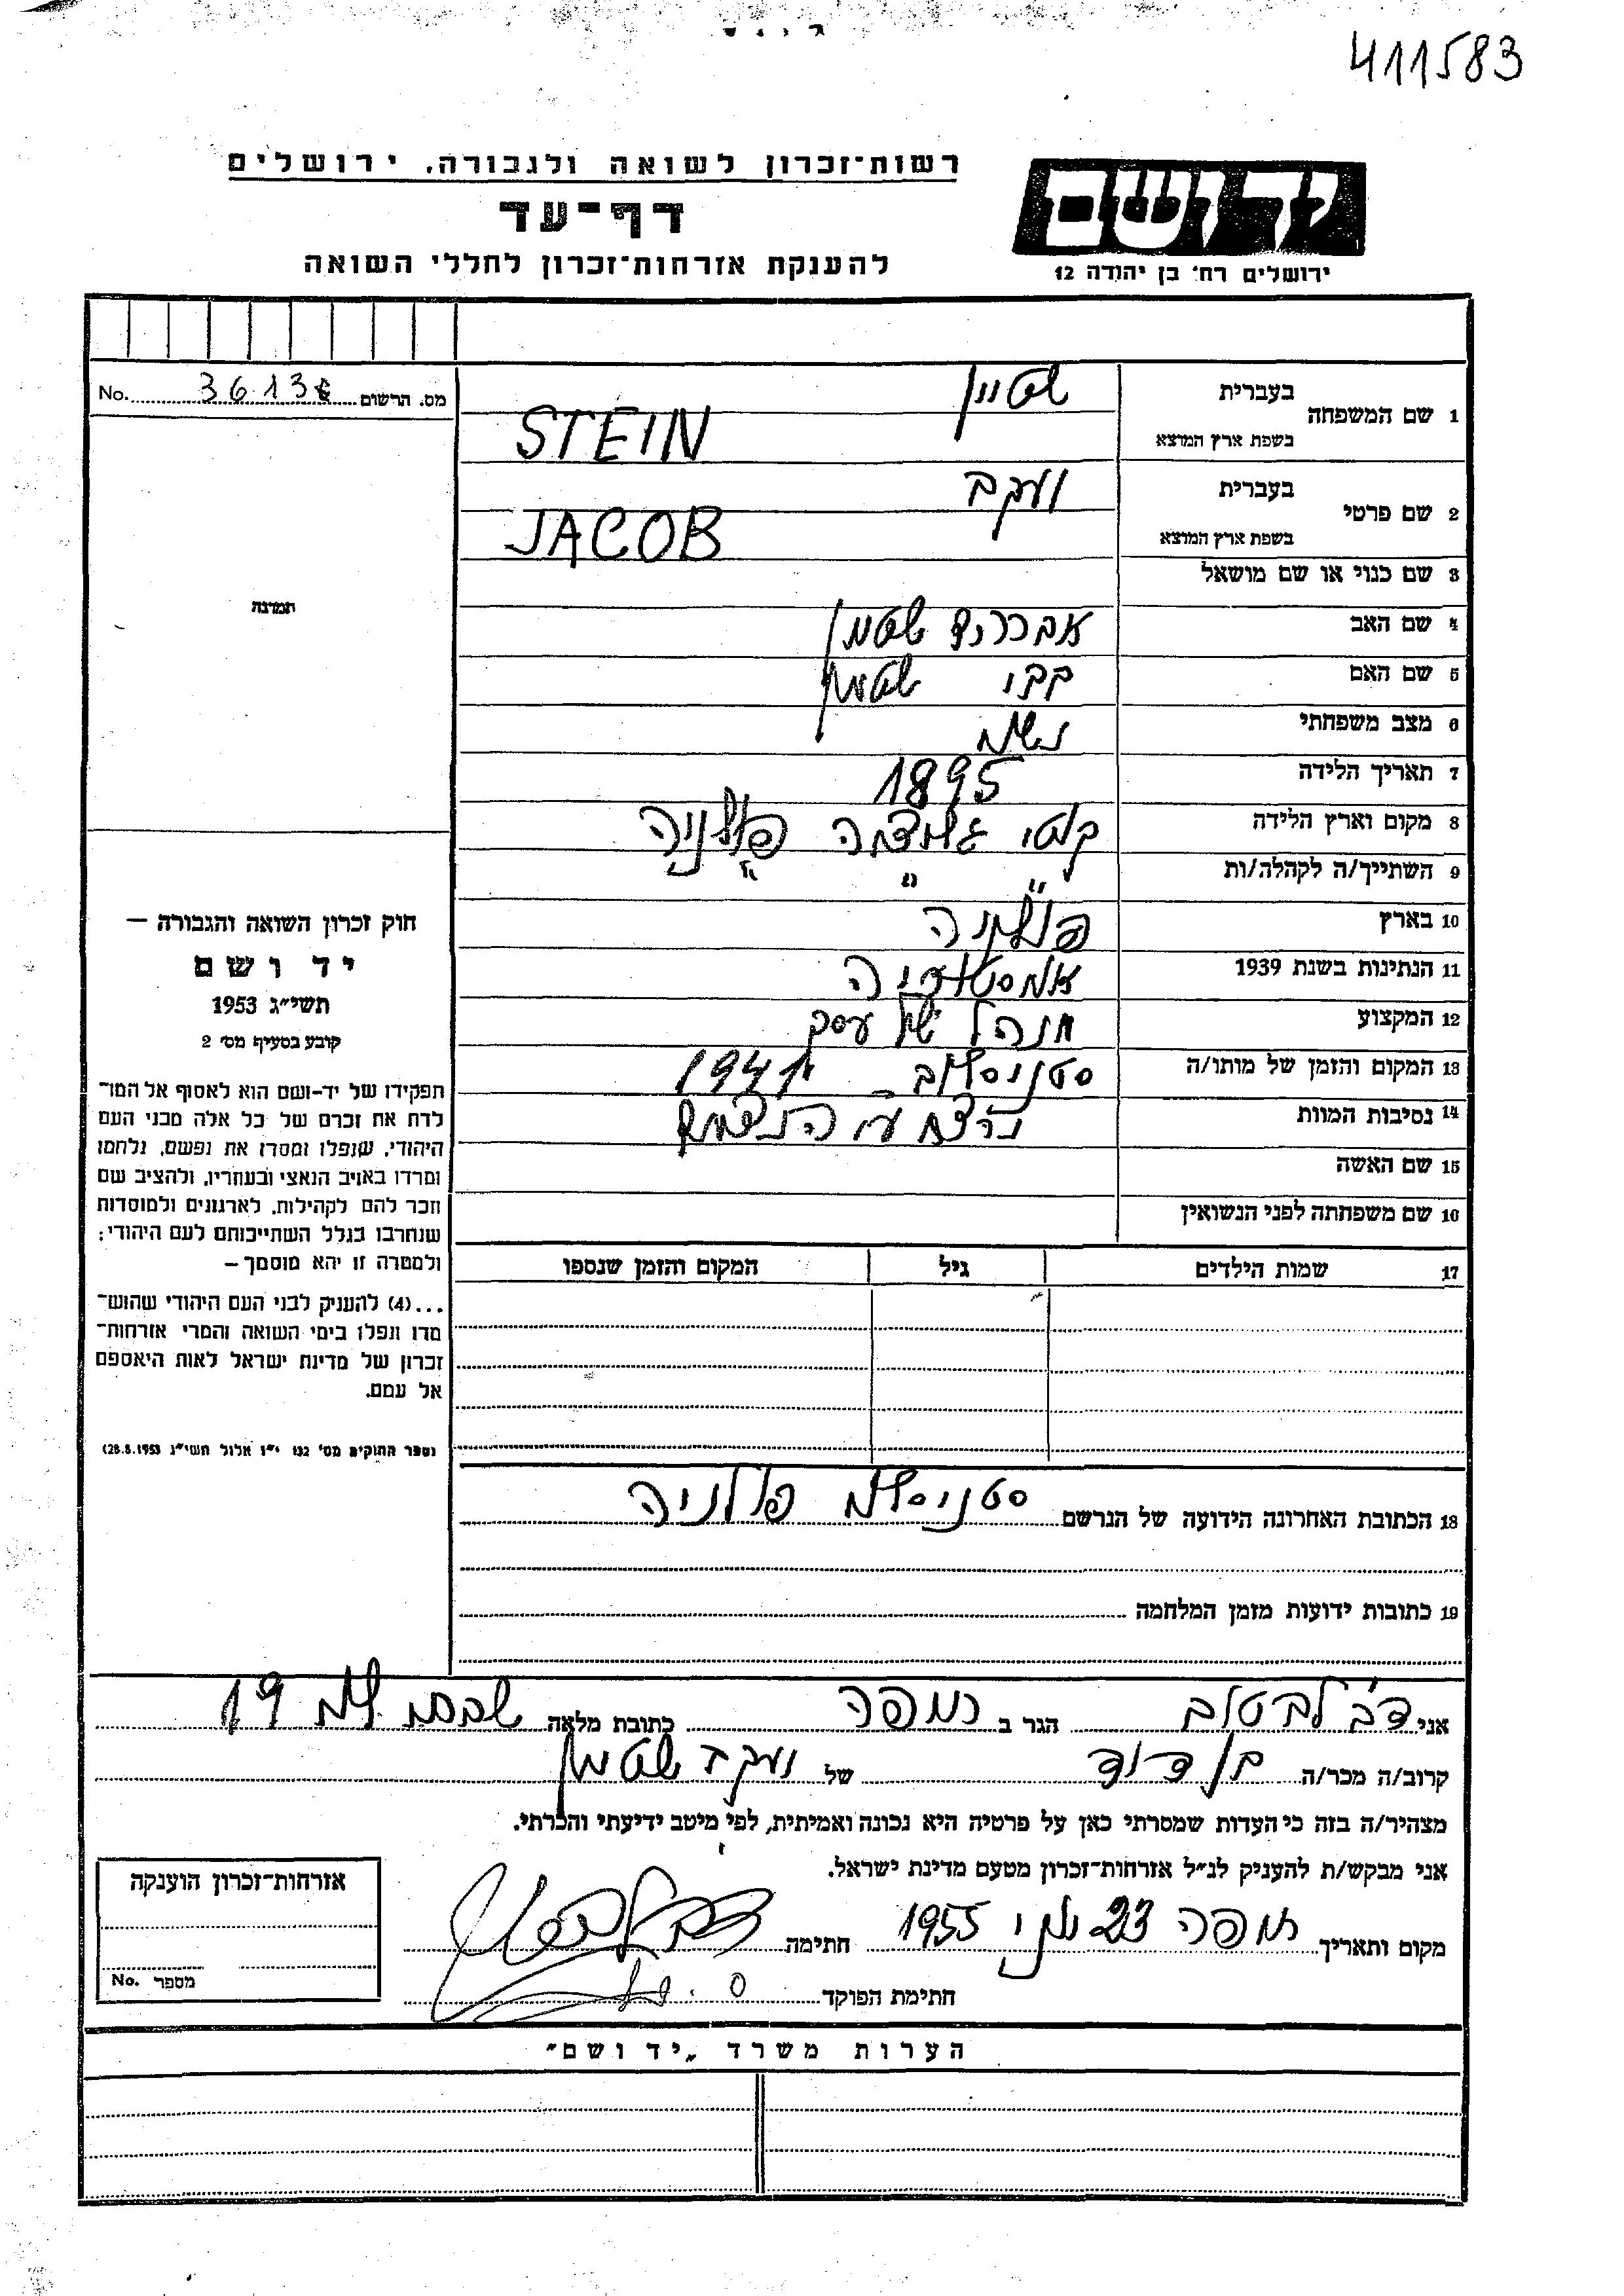 411583
רשות־זכרון לשואה ולגבורה, ירושלים
ידושם
דף־עד
להענקת אזרחות־זכרון לחללי השואה
ירושלים רח׳ בן יהודה 12
מס. הרשום No. 3613
1 שם המשפחה
בעברית שטיין
בשפת ארץ המוצא STEIN
2 שם פרטי
בעברית יעקב
בשפת ארץ המוצא JACOB
3 שם כנוי או שם מושאל
4 שם האב אברהם שטיין
5 שם האם שטיין
6 מצב משפחתי נשוי
7 תאריך הלידה 1895
8 מקום וארץ הלידה פולניה
9 השתייך/ה לקהלה/ות " "
10 בארץ פולניה
11 הנתינות בשנת 1939
12 המקצוע מנהל של עסק
13 המקום והזמן של מותו/ה סטניסלוב 1941
14 נסיבות המוות נרצח ע״י הנאצים
15 שם האשה
16 שם משפחתה לפני הנשואין
17 שמות הילדים גיל המקום והזמן שנספו
18 הכתובת האחרונה הידועה של הנרשם סטניסלוב פולניה
19 כתובות ידועות מזמן המלחמה
תמונה
חוק זכרון השואה והגבורה —
יד ושם
תשי״ג 1953
קובע בסעיף מס׳ 2
תפקידו של יד־ושם הוא לאסוף אל המו־
לדת את זכרם של כל אלה מבני העם
היהודי, שנפלו ומסרו את נפשם, נלחמו
ומרדו באויב הנאצי ובעוזריו, ולהציב שם
וזכר להם לקהילות, לארגונים ולמוסדות
שנחרבו בגלל השתייכותם לעם היהודי;
ולמטרה זו יהא מוסמך —
...(4) להעניק לבני העם היהודי שהוש־
מדו ונפלו בימי השואה והמרי אזרחות־
זכרון של מדינת ישראל לאות היאספם
אל עמם.
(ספר החוקים מס׳ 132 י״ז אלול תשי״ג 28.8.1953)
אני דב לבטוב הגר ב חיפה כתובת מלאה 19
קרוב/ה מכר/ה בן דוד של יעקב שטיין
מצהיר/ה בזה כי העדות שמסרתי כאן על פרטיה היא נכונה ואמיתית, לפי מיטב ידיעתי והכרתי.
אני מבקש/ת להעניק לנ״ל אזרחות־זכרון מטעם מדינת ישראל.
מקום ותאריך חיפה 23 יוני 1955 חתימה
חתימת הפוקד
אזרחות־זכרון הוענקה
מספר No.
הערות משרד „יד ושם״